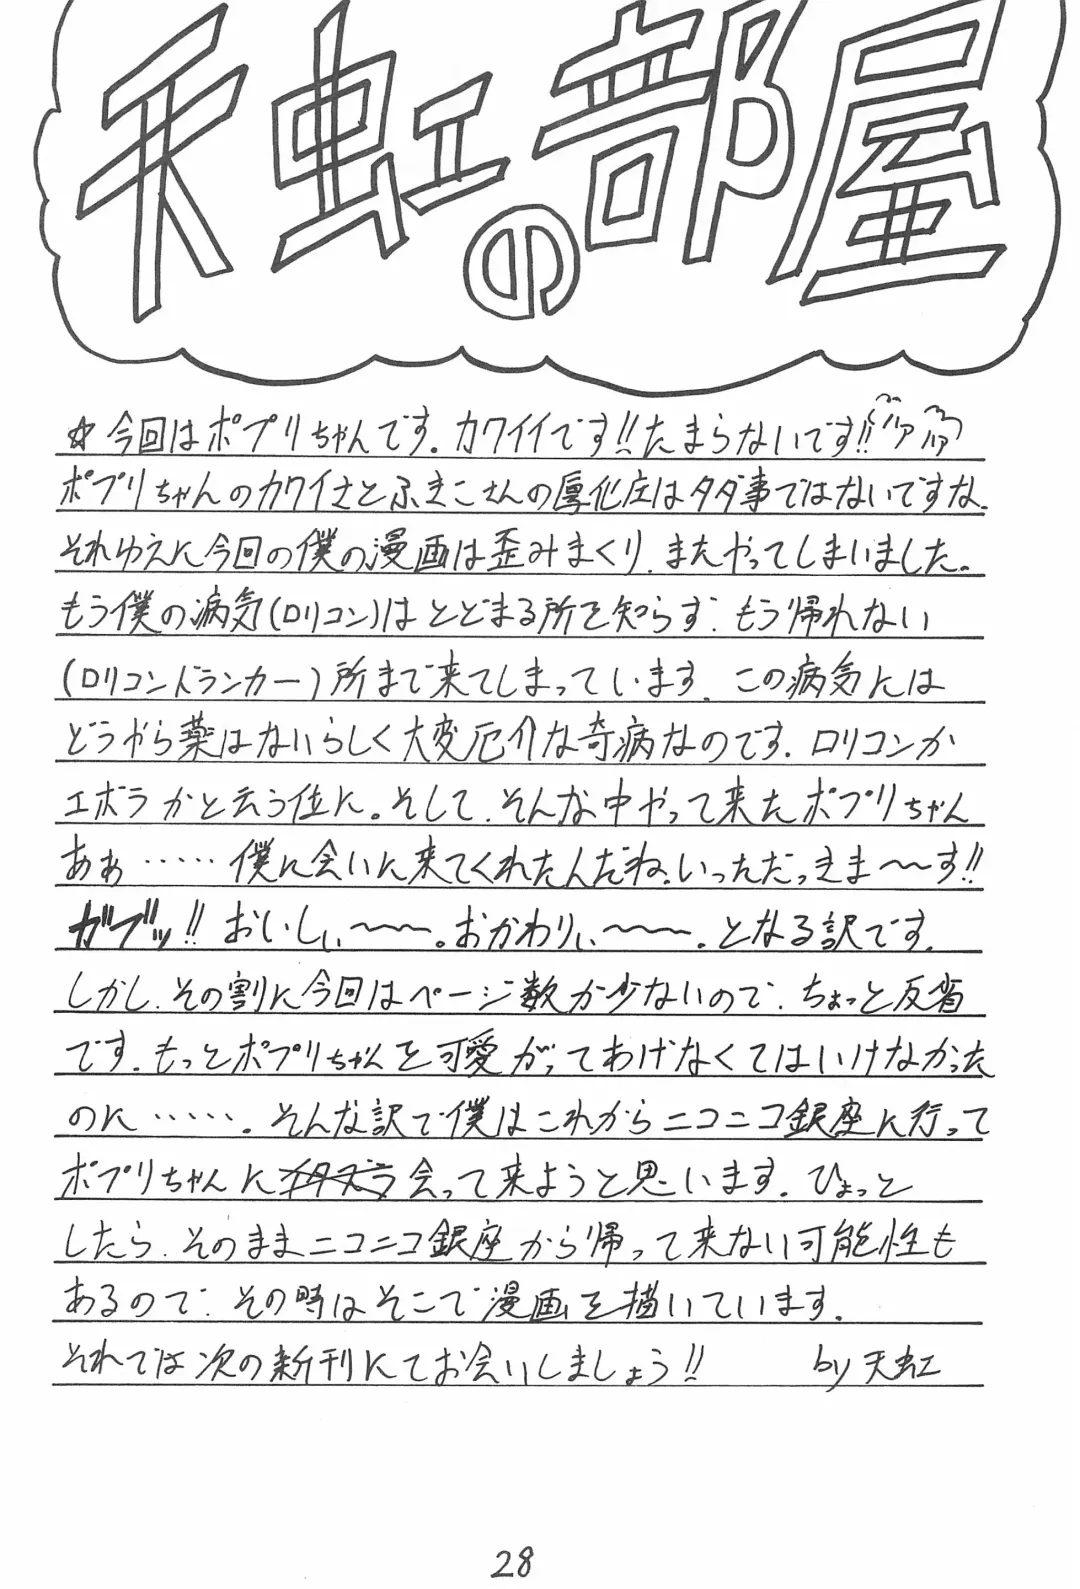 天虹の部屋
☆今回はポプリちゃんです。カワイイです!!たまらないです!!ハァハァ
ポプリちゃんのカワイさとふきこさんの厚化庄はタダ事ではないですな。
それゆえに今回の僕の漫画は歪みまくり、またやってしまいました。
もう僕の病気(ロリコン)はとどまる所を知らず、もう帰れない
(ロリコンドランカー)所まで来てしまっています。この病気には
どうやら薬はないらしく大変厄介な奇病なのです。ロリコンか
エボラかと云う位に。そして、そんな中やって来たポプリちゃん
あぁ……僕に会いに来てくれたんだね。いっただっきま〜〜す!!
ガブッ!!おいしぃ〜〜。おかわりぃ〜〜。となる訳です。
しかし、その割に今回はページ数が少ないので、ちょっと反省
です。もっとポプリちゃんを可愛がってあげなくてはいけなかった
のに……。そんな訳で僕はこれからニコニコ銀座に行って
ポプリちゃんに会って来ようと思います。ひょっと
したら、そのままニコニコ銀座から帰って来ない可能性も
あるので、その時はそこで漫画を描いています。
それでは次の新刊にてお会いしましょう!! by 天虹
28